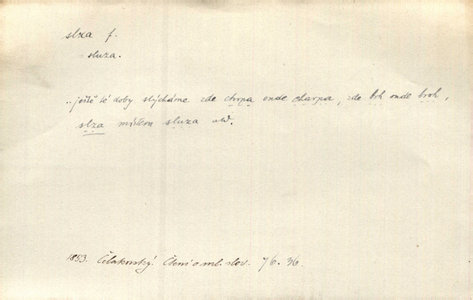 slza f.
sluza.
.. ještě té doby slýcháme zde chrpa onde charpa, zde brk onde brok,
slza místem sluza atd.
1853. Čelakovský. Čtení o ml. slov. 7/6. 36.